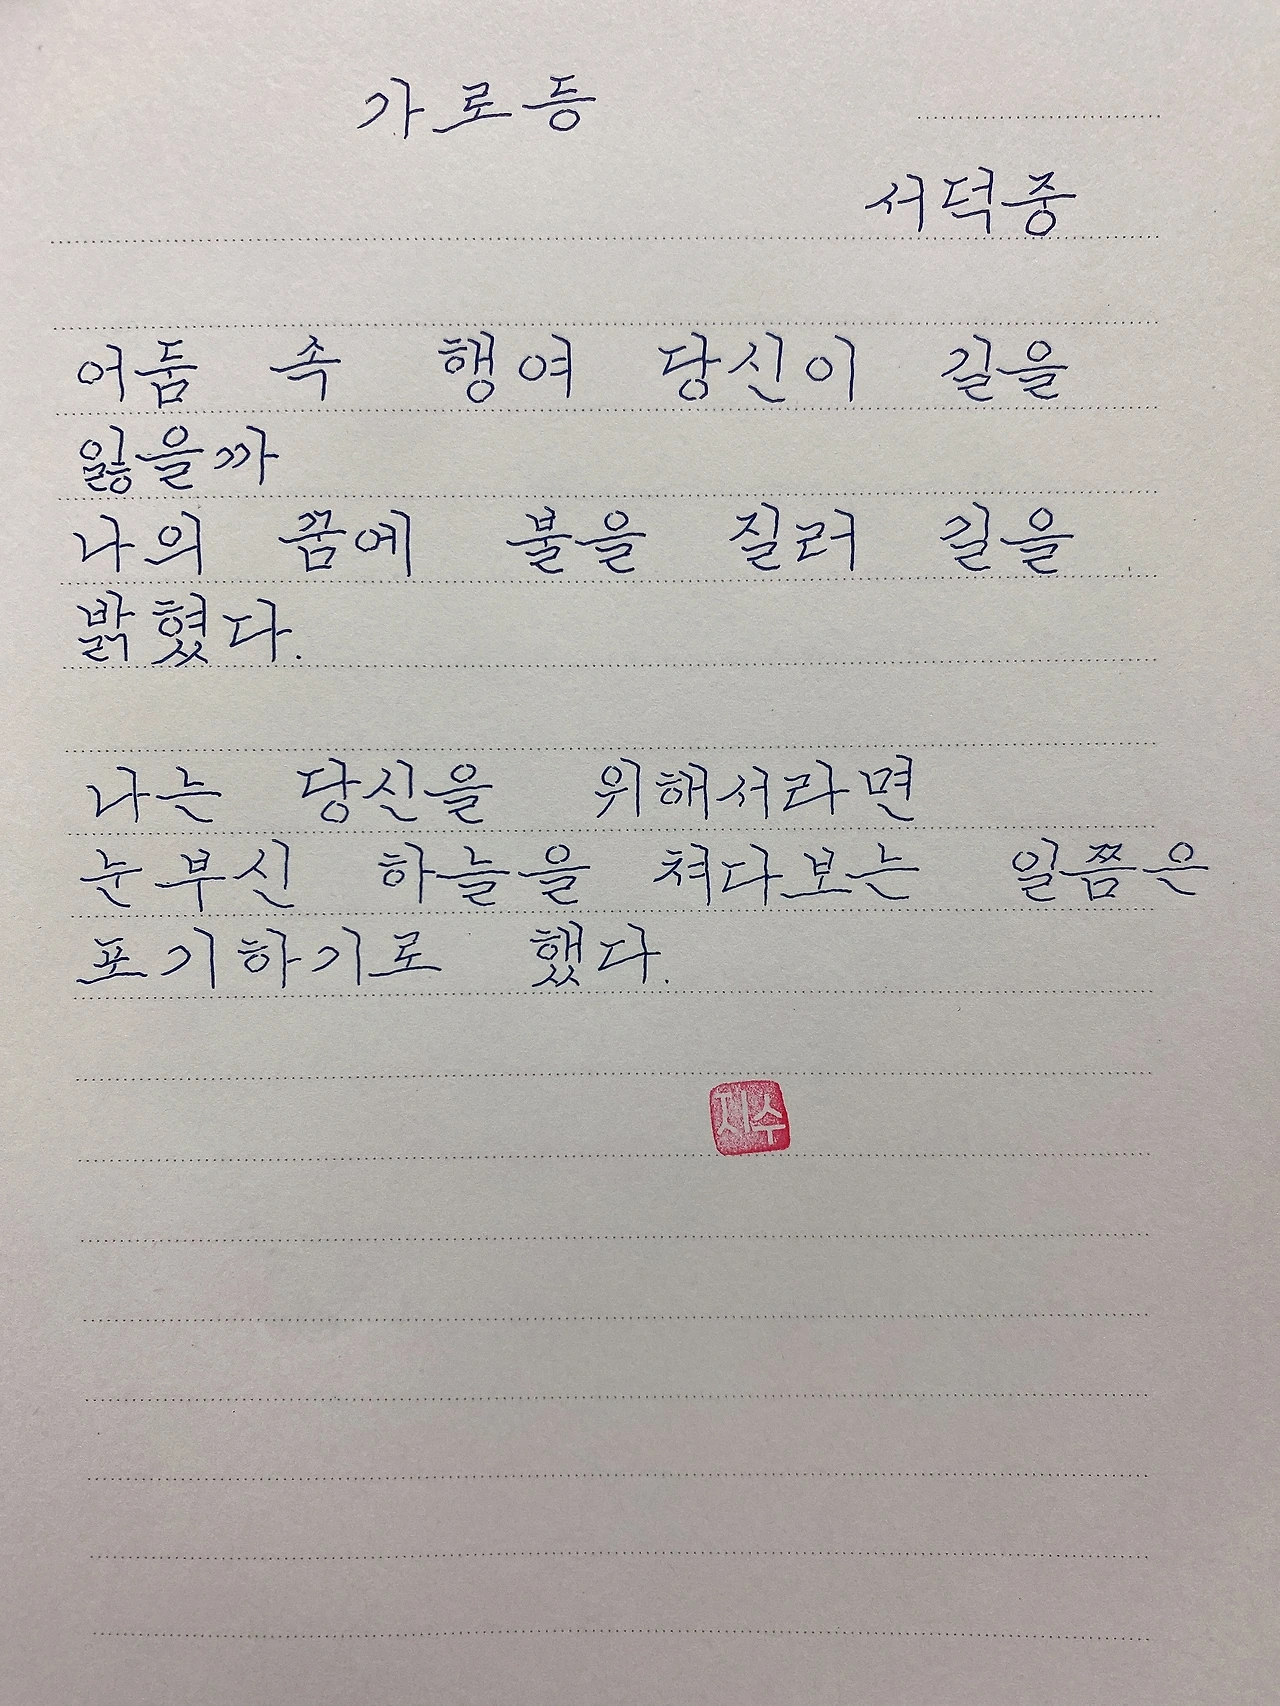 가로등
서덕중
어둠 속 행여 당신이 길을
잃을까
나의 꿈에 불을 질러 길을
밝혔다.
나는 당신을 위해서라면
눈부신 하늘을 쳐다보는 일쯤은
포기하기로 했다.